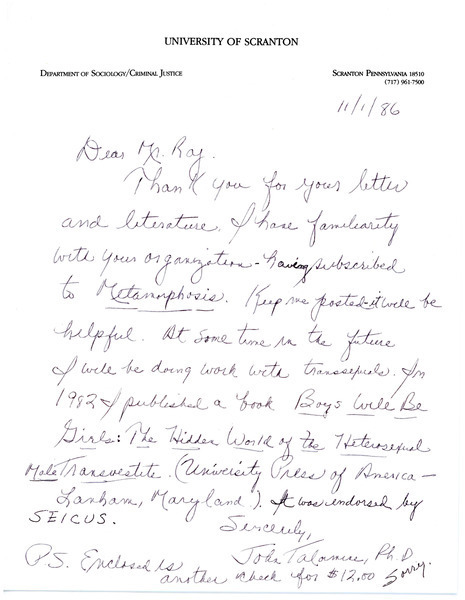 UNIVERSITY OF SCRANTON
DEPARTMENT OF SOCIOLOGY/CRIMINAL JUSTICE SCRANTON PENNSYLVANIA 18510
(717) 961-7500
11/1/86
Dear Mr. Raj.
Thank you for your letter
and literature. I have familiarity
with your organization - having subscribed
to Metamorphosis. Keep me posted - it will be
helpful. At some time in the future
I will be doing work with transsexuals. In
1982 I published a book Boys Will Be
Girls: The Hidden World of the Heterosexual
Male Transvestite. (University Press of America -
Lanham, Maryland). It was endorsed by
SEICUS.
Sincerely,
John Talamini, Ph D
P.S. Enclosed is
another check for $12.00 Sorry.